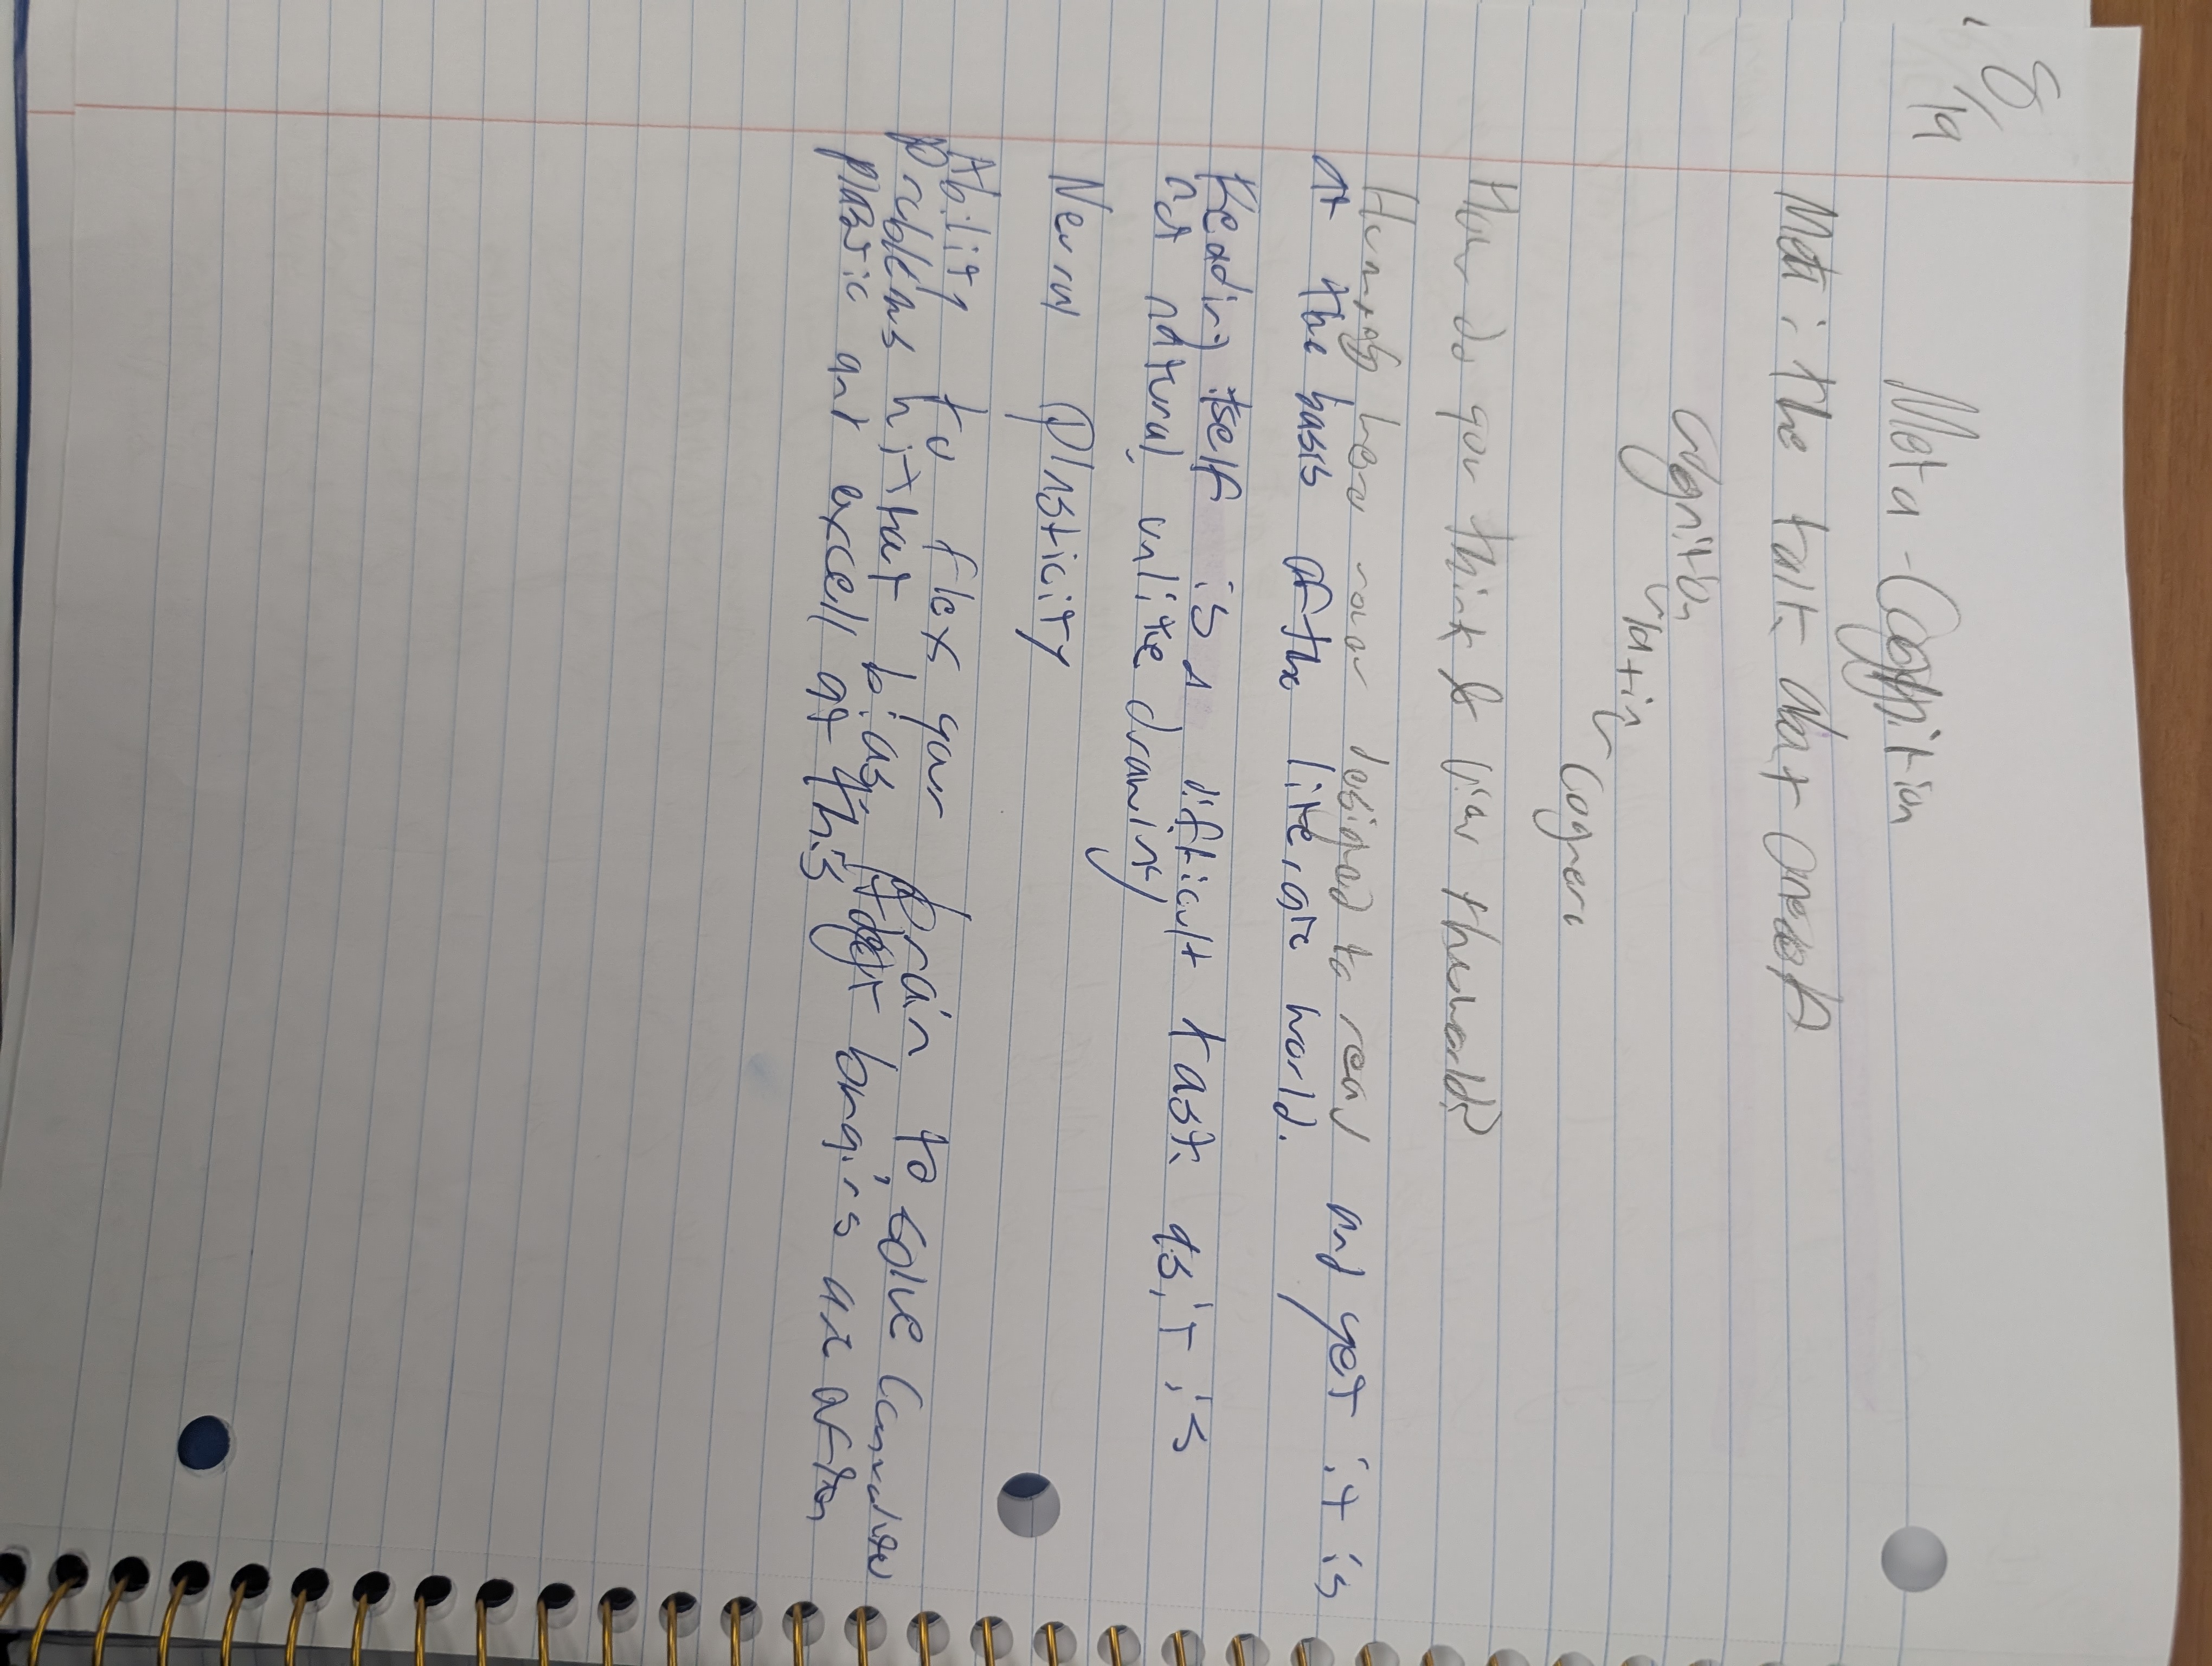 8/19
Meta-Cognition
Meta: the talk about oneself
Cognition
latin
Cognere
How do you think & view the world?
Humans were never designed to read and yet it is
at the basis of the literate world.
Reading itself is a difficult task as it is
not natural, unlike drawing
Neural Plasticity
Ability to flex your brain to solve
Problems without bias. Adept brains are often
plastic and excell at this